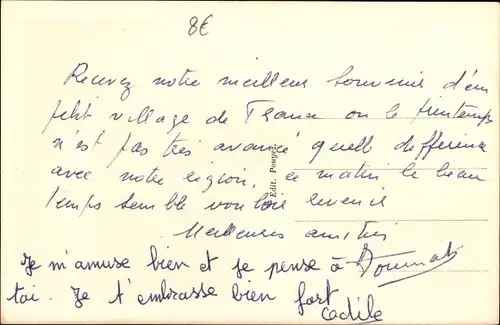 8€
Recevez notre meilleur souvenir d'un
petit village de France ou le printemps
n'est pas très avancé quelle différence
avec notre région, ce matin le beau
temps semble vouloir revenir
Meilleures amitiés
Je m'amuse bien et je pense à
toi. Je t'embrasse bien fort
Edit. Pouyet